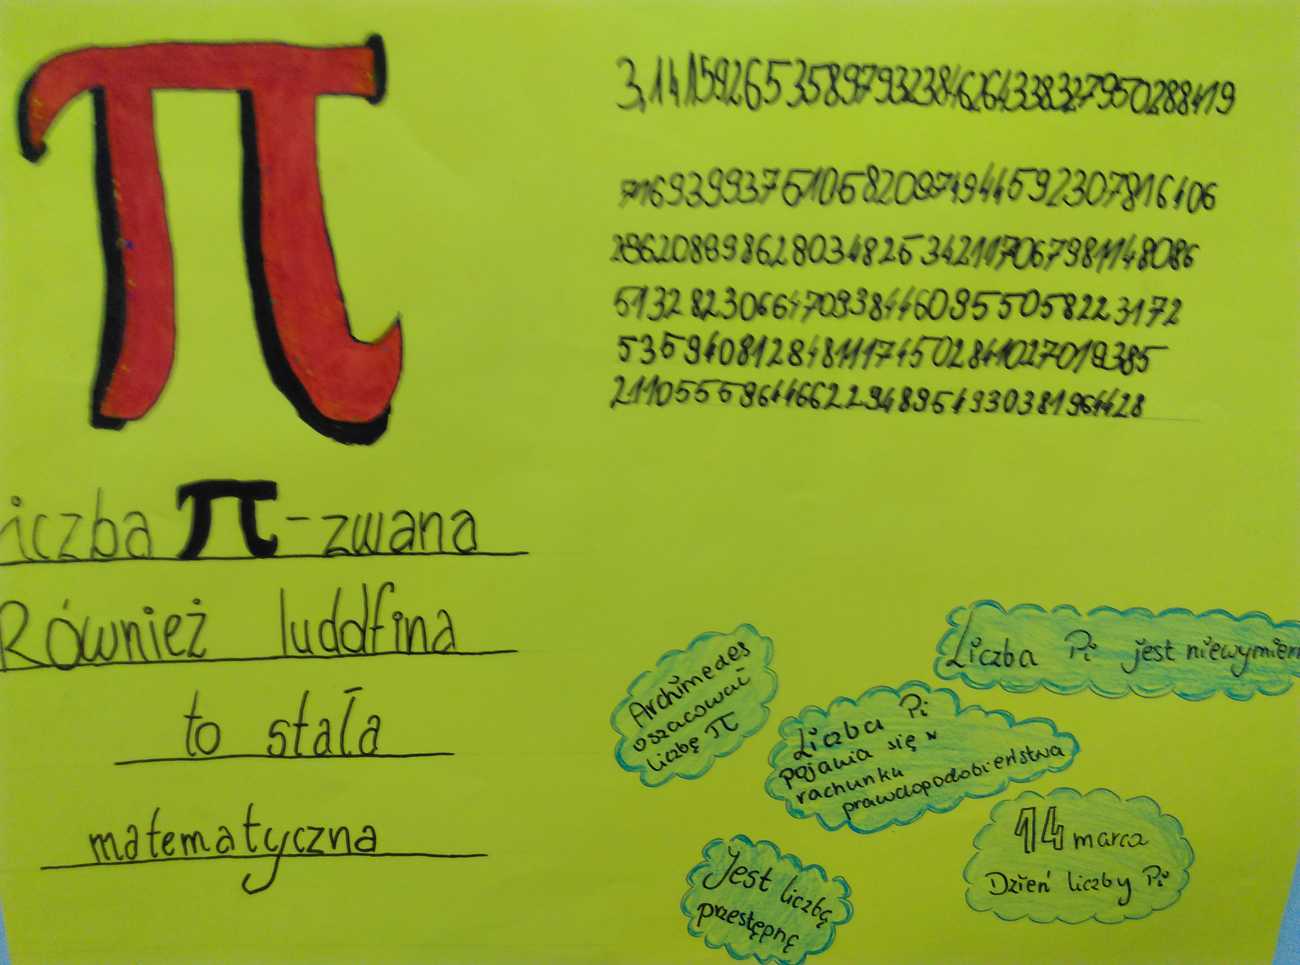 3,14159265358979323846264338327950288419
7169399375105820974944592307816406
286208998628034825342117067981148086
51328230664709384460955058223172
53594081284811174502841027019385
211055596446622948954930381964428
iczba π - zwana
Również luddfina
to stała
matematyczna
Liczba Pi jest niewymiern
Archimedes
oszacował
liczbę π
Liczba Pi
pojawia się w
rachunku
prawdopodobieństwa
14 marca
Dzień liczby Pi
Jest liczbą
przestępną